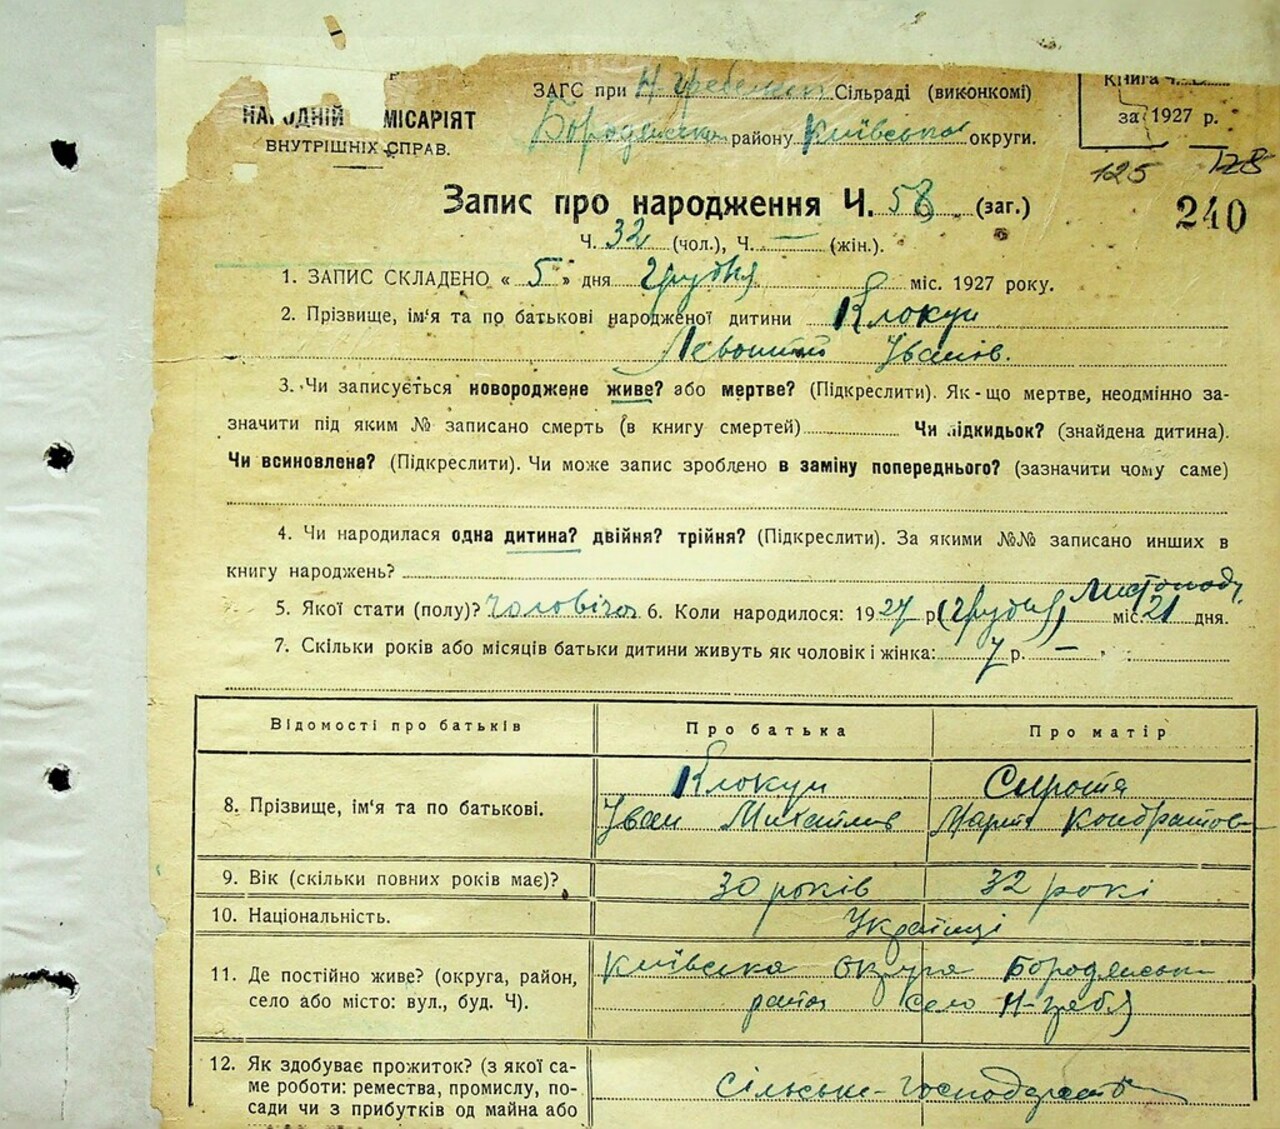 ЗАГС при Н-Гребельт Сільраді (виконкомі)
НАРОДНІЙ МІСАРІЯТ
ВНУТРІШНІХ СПРАВ.
Бородянськ району Київської округи.
Книга Ч.
за 1927 р.
125 128
240
Запис про народження Ч. 58 (заг.)
Ч. 32 (чол.), Ч. — (жін.).
1. ЗАПИС СКЛАДЕНО « 5 » дня Грудня міс. 1927 року.
2. Прізвище, ім'я та по батькові народженої дитини Клокун
Левонтий Іванів.
3. Чи записується новороджене живе? або мертве? (Підкреслити). Як-що мертве, неодмінно за-
значити під яким № записано смерть (в книгу смертей) Чи підкидьок? (знайдена дитина).
Чи всиновлена? (Підкреслити). Чи може запис зроблено в заміну попереднього? (зазначити чому саме)
4. Чи народилася одна дитина? двійня? трійня? (Підкреслити). За якими №№ записано инших в
книгу народжень?
Листопада
5. Якої стати (полу)? чоловіча 6. Коли народилося: 1927 р. (Грудня) міс. 21 дня.
7. Скільки років або місяців батьки дитини живуть як чоловік і жінка: 7 р. —
Відомості про батьків Про батька Про матір
8. Прізвище, ім'я та по батькові.
Клокун Сирота
Іван Михайлів Марія Кондратов
9. Вік (скільки повних років має)? 30 років 32 рокі
10. Національність. Українці
11. Де постійно живе? (округа, район,
село або місто: вул., буд. Ч).
Київська округа Бородянськ
район село Н-Гребля
12. Як здобуває прожиток? (з якої са-
ме роботи: ремества, промислу, по-
сади чи з прибутків од майна або
Сільське-господарств